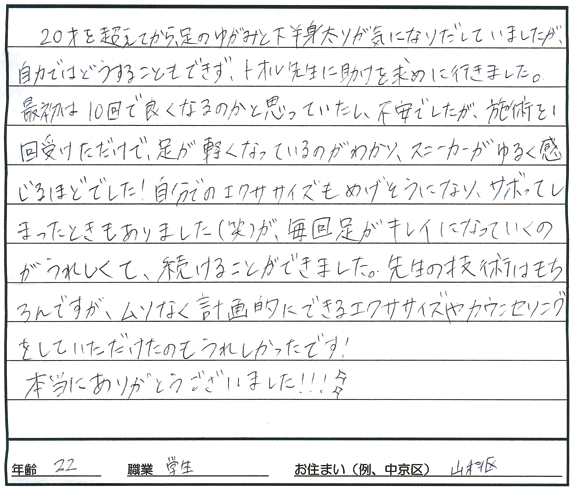 20才を超えてから、足のゆがみと下半身太りが気になりだしていましたが、
自力ではどうすることもできず、トオル先生に助けを求めに行きました。
最初は10回で良くなるのかと思っていたし、不安でしたが、施術を1
回受けただけで、足が軽くなっているのがわかり、スニーカーがゆるく感
じるほどでした！自分でのエクササイズもめげそうになり、サボってし
まったときもありました(笑)が、毎回足がキレイになっていくの
がうれしくて、続けることができました。先生の技術はもち
ろんですが、ムリなく計画的にできるエクササイズやカウンセリング
をしていただけたのもうれしかったです！
本当にありがとうございました！！！
年齢 22 職業 学生 お住まい（例、中京区） 山科区